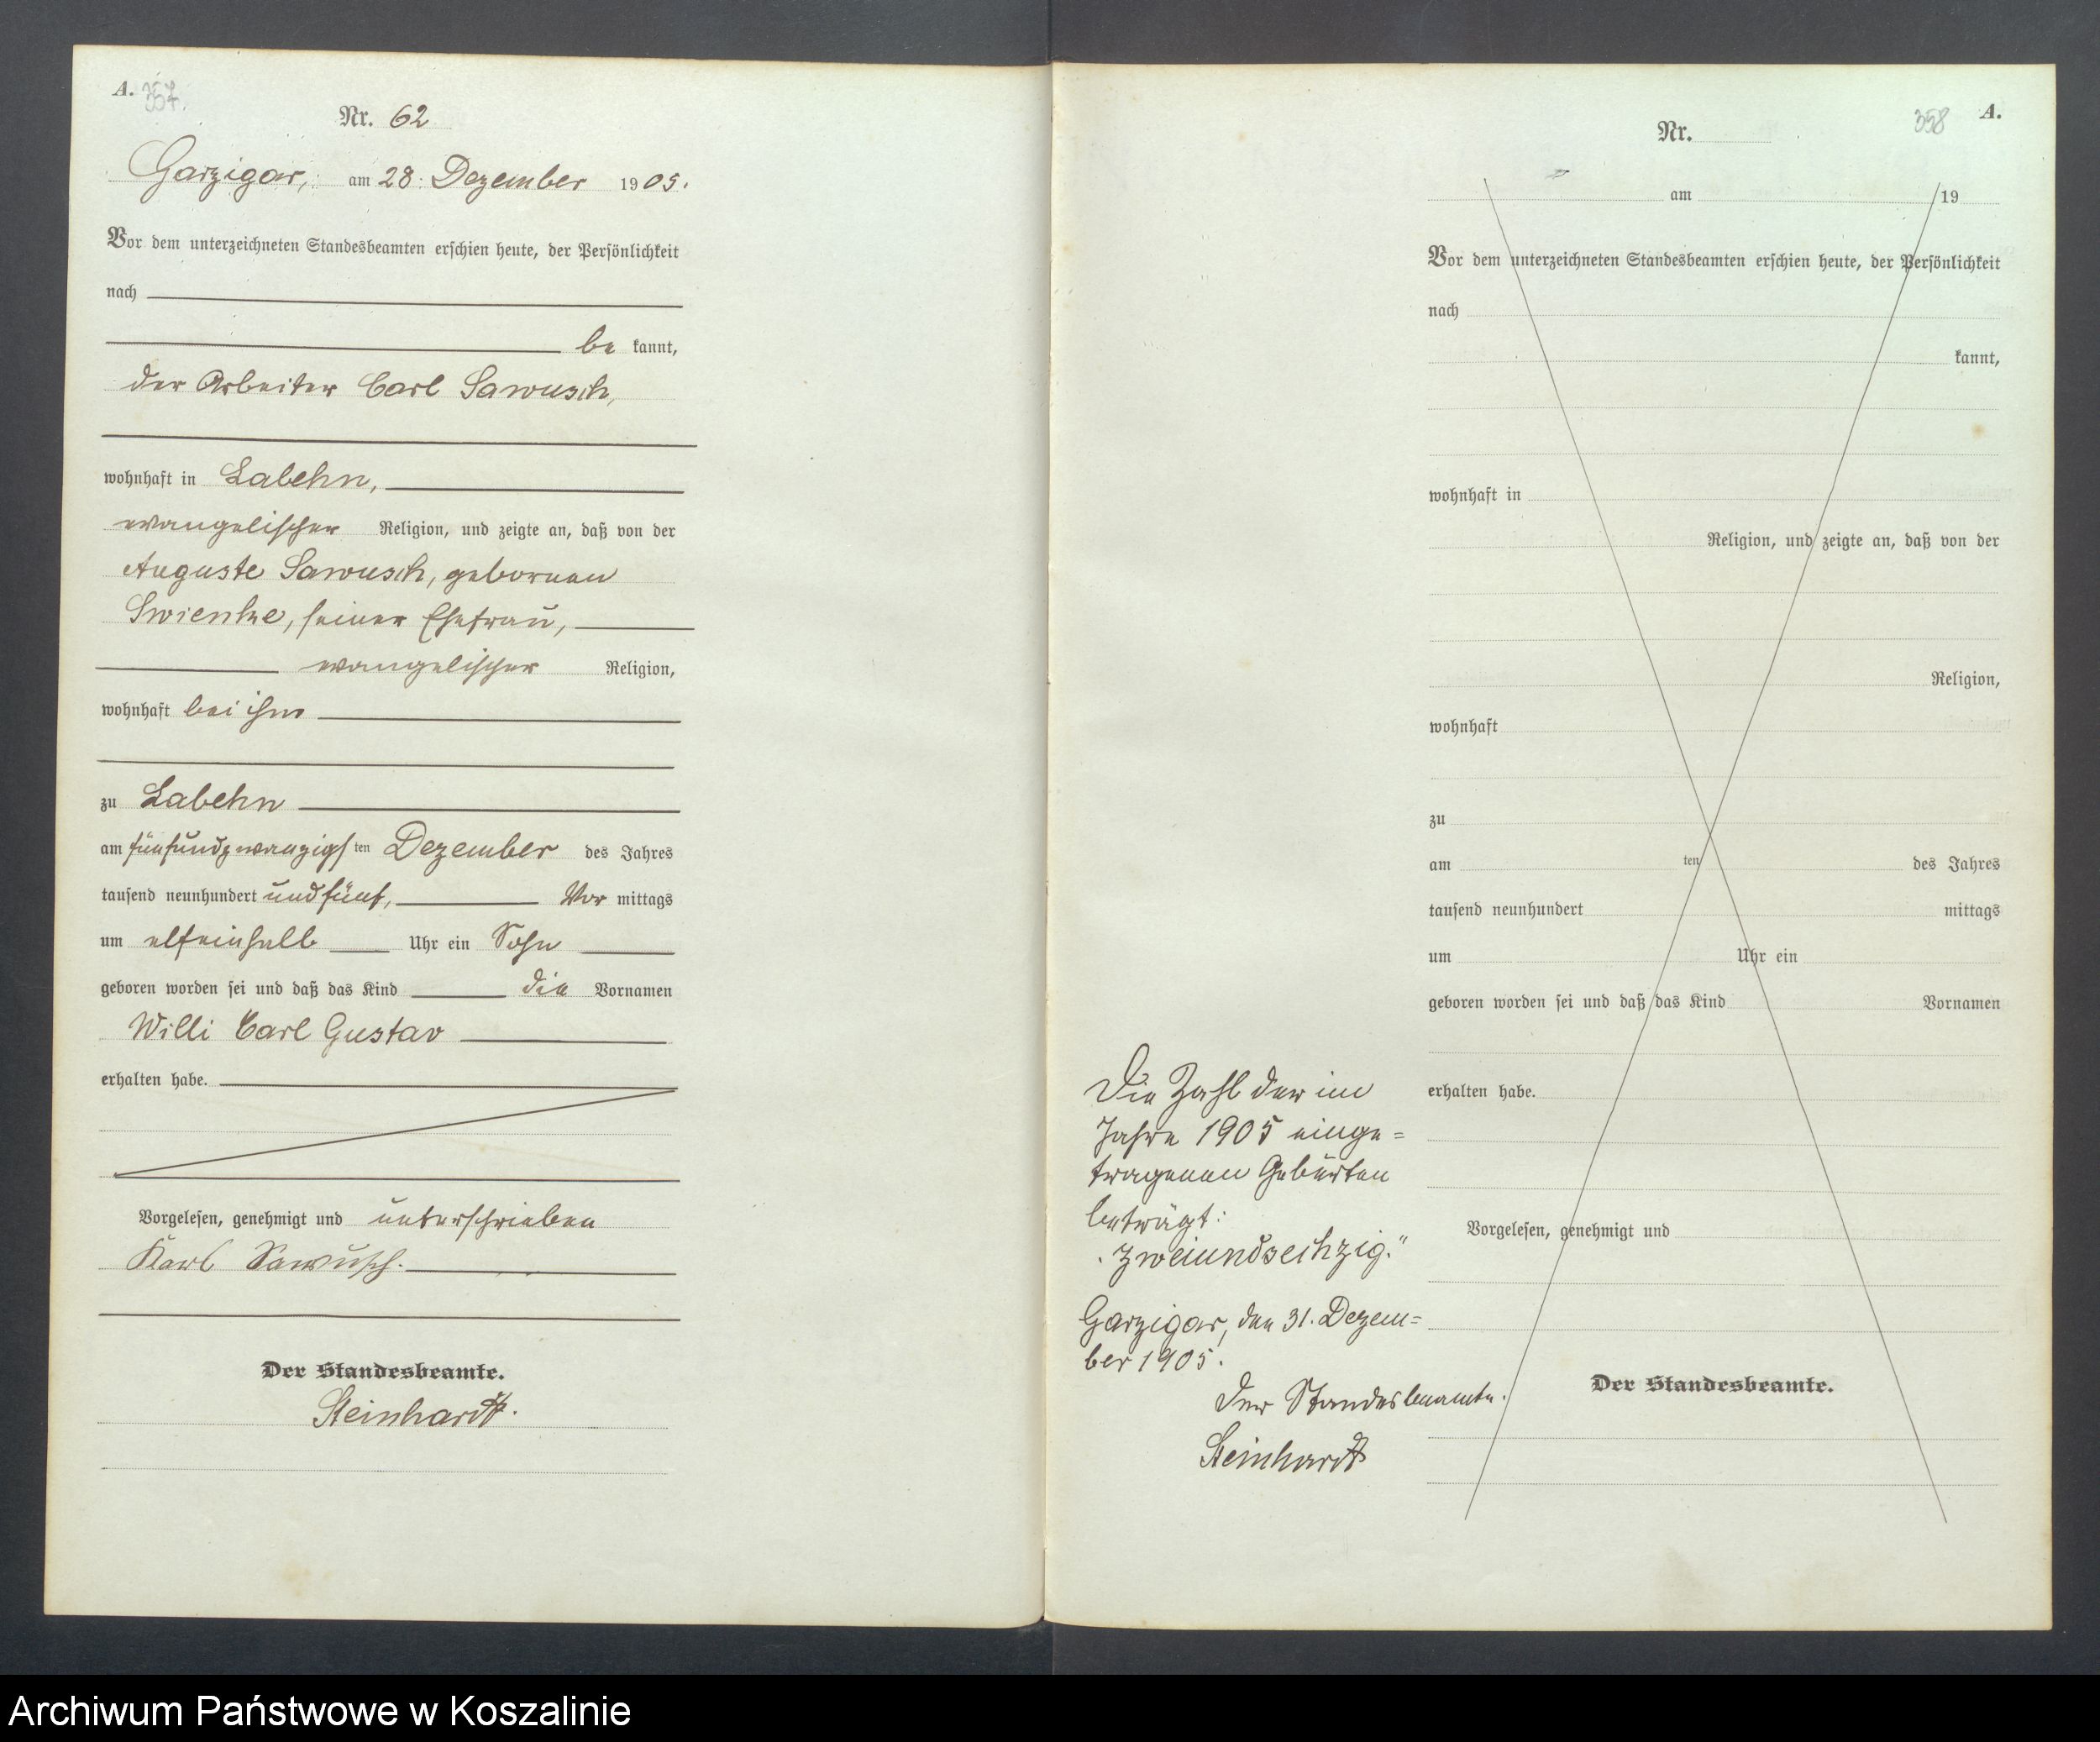 A. 357.
Nr. 62
Garzigar, am 28. Dezember 1905.
Vor dem unterzeichneten Standesbeamten erschien heute, der Persönlichkeit
nach
be kannt,
der Arbeiter Carl Sawusch,
wohnhaft in Labehn,
evangelischer Religion, und zeigte an, daß von der
Auguste Sawusch, geborenen
Swienke, seiner Ehefrau,
evangelischer Religion,
wohnhaft bei ihm
zu Labehn
am fünfundzwanzigsten Dezember des Jahres
tausend neunhundert und fünf, Vor mittags
um elfeinhalb Uhr ein Sohn
geboren worden sei und daß das Kind die Vornamen
Willi Carl Gustav
erhalten habe.
Vorgelesen, genehmigt und unterschrieben
Karl Sawusch.
Der Standesbeamte.
Steinhardt.
358 A.
Nr.
am 19
Vor dem unterzeichneten Standesbeamten erschien heute, der Persönlichkeit
nach
kannt,
wohnhaft in
Religion, und zeigte an, daß von der
Religion,
wohnhaft
zu
am ten des Jahres
tausend neunhundert mittags
um Uhr ein
geboren worden sei und daß das Kind Vornamen
erhalten habe.
Vorgelesen, genehmigt und
Der Standesbeamte.
Die Zahl der im
Jahre 1905 einge=
tragenen Geburten
beträgt:
"Zweiundsechzig."
Garzigar, den 31. Dezem=
ber 1905.
Der Standesbeamte.
Steinhardt
Archiwum Państwowe w Koszalinie